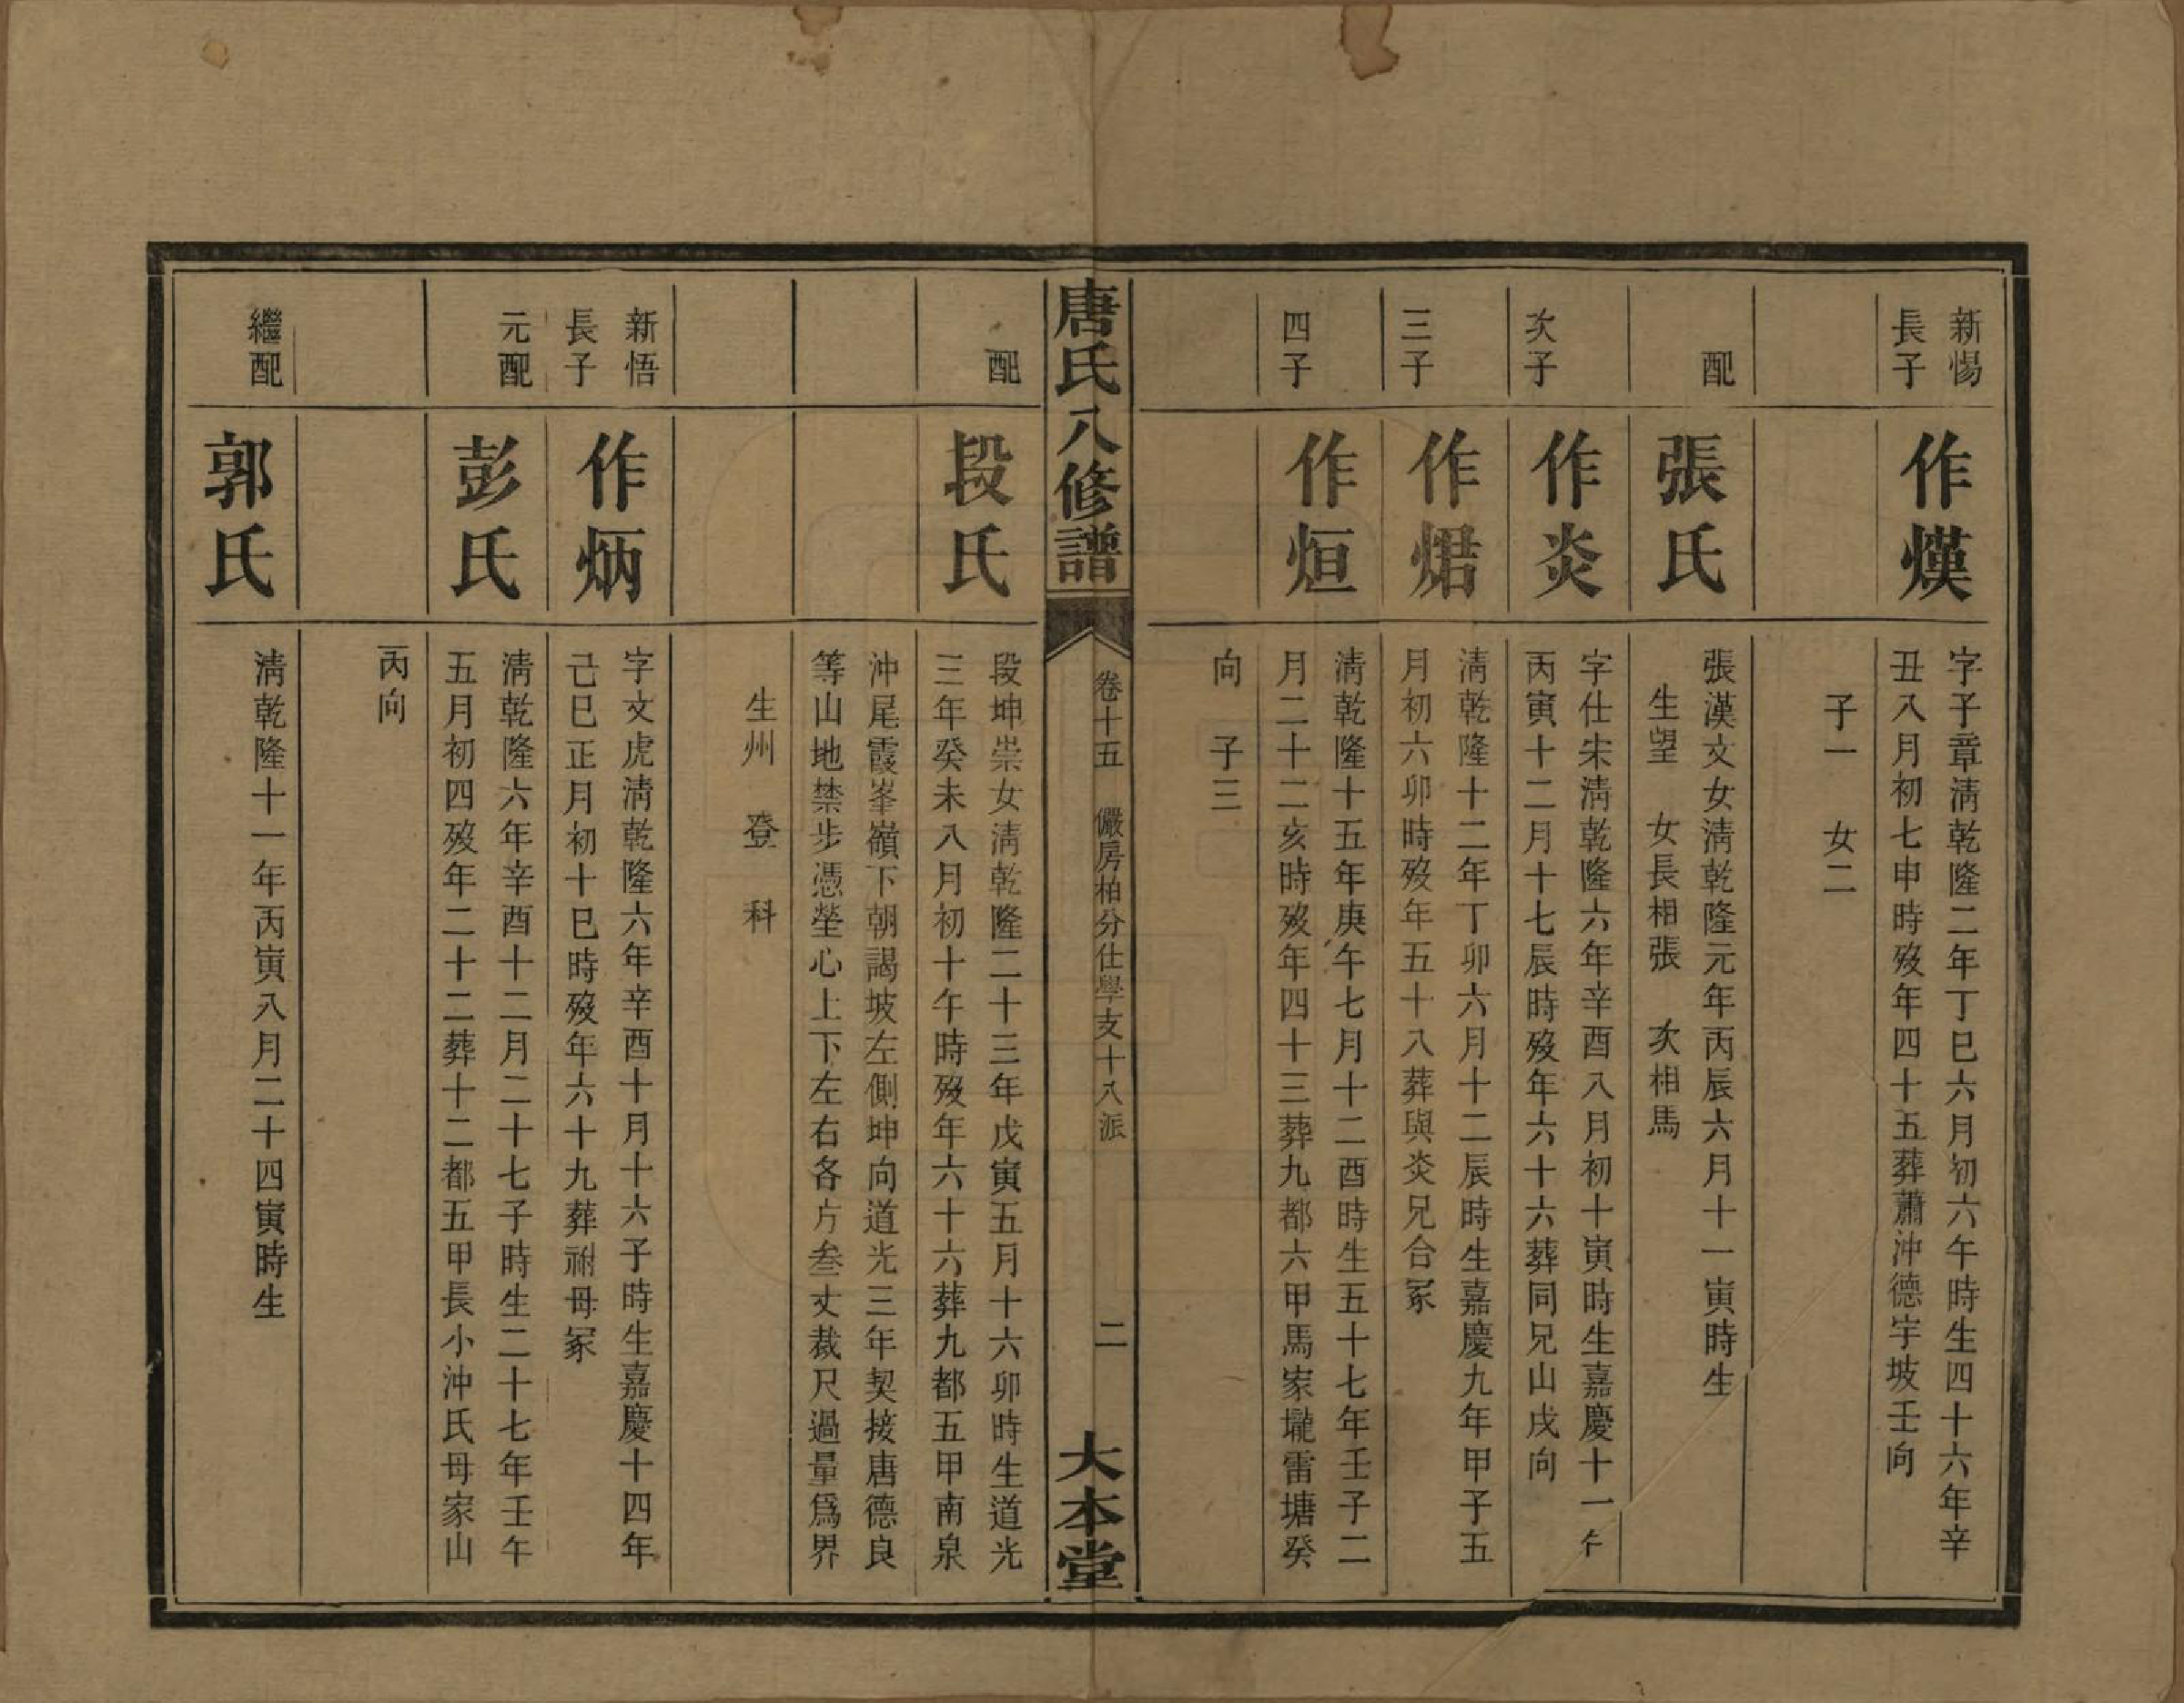 新惕
長子
作熯
字子章淸乾隆二年丁巳六月初六午時生四十六年辛
丑八月初七申時歿年四十五葬蕭沖德宇坡壬向
子一　女二
配
張氏
張漢文女淸乾隆元年丙辰六月十一寅時生
生望　女長相張　次相馬
次子
作炎
字仕宋淸乾隆六年辛酉八月初十寅時生嘉慶十一年
丙寅十二月十七辰時歿年六十六葬同兄山戌向
三子
作焻
淸乾隆十二年丁卯六月十二辰時生嘉慶九年甲子五
月初六卯時歿年五十八葬與炎兄合冢
四子
作烜
淸乾隆十五年庚午七月十二酉時生五十七年壬子二
月二十二亥時歿年四十三葬九都六甲馬家壠雷塘癸
向　子三
唐氏八修譜
卷十五　儼房柏分仕學支十八派
二
大本堂
配
段氏
段坤崇女淸乾隆二十三年戊寅五月十六卯時生道光
三年癸未八月初十午時歿年六十六葬九都五甲南泉
沖尾霞峯嶺下朝謁坡左側坤向道光三年契接唐德良
等山地禁步憑塋心上下左右各方叁丈裁尺過量爲界
生州　登　科
新悟
長子
作炳
字文虎淸乾隆六年辛酉十月十六子時生嘉慶十四年
己巳正月初十巳時歿年六十九葬祔母冢
元配
彭氏
淸乾隆六年辛酉十二月二十七子時生二十七年壬午
五月初四歿年二十二葬十二都五甲長小沖氏母家山
丙向
繼配
郭氏
淸乾隆十一年丙寅八月二十四寅時生